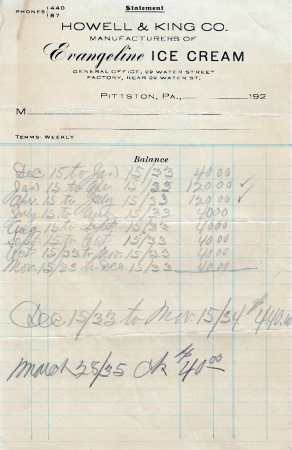 Statement
PHONES 1440
187
HOWELL & KING CO.
MANUFACTURERS OF
Evangeline ICE CREAM
GENERAL OFFICE, 29 WATER STREET
FACTORY, NEAR 29 WATER ST.
PITTSTON, PA., 192
M
TERMS: WEEKLY
Balance
Dec 15 to Jan 15/33 40 00
Jan 15 to Apr. 15/33 120 00 ✓
Apr. 15 to July 15/33 120 00 ✓
July 15 to Aug 15/33 40 00
Aug 15 to Sept 15/33 40 00
Sept 15 to Oct 15/33 40 00
Oct 15/33 to Nov. 15/33 40 00
Nov. 15/33 to Dec. 15/33 40 00
Dec. 15/33 to Nov. 15/34 $440.00
March 28/35 ck $40 00